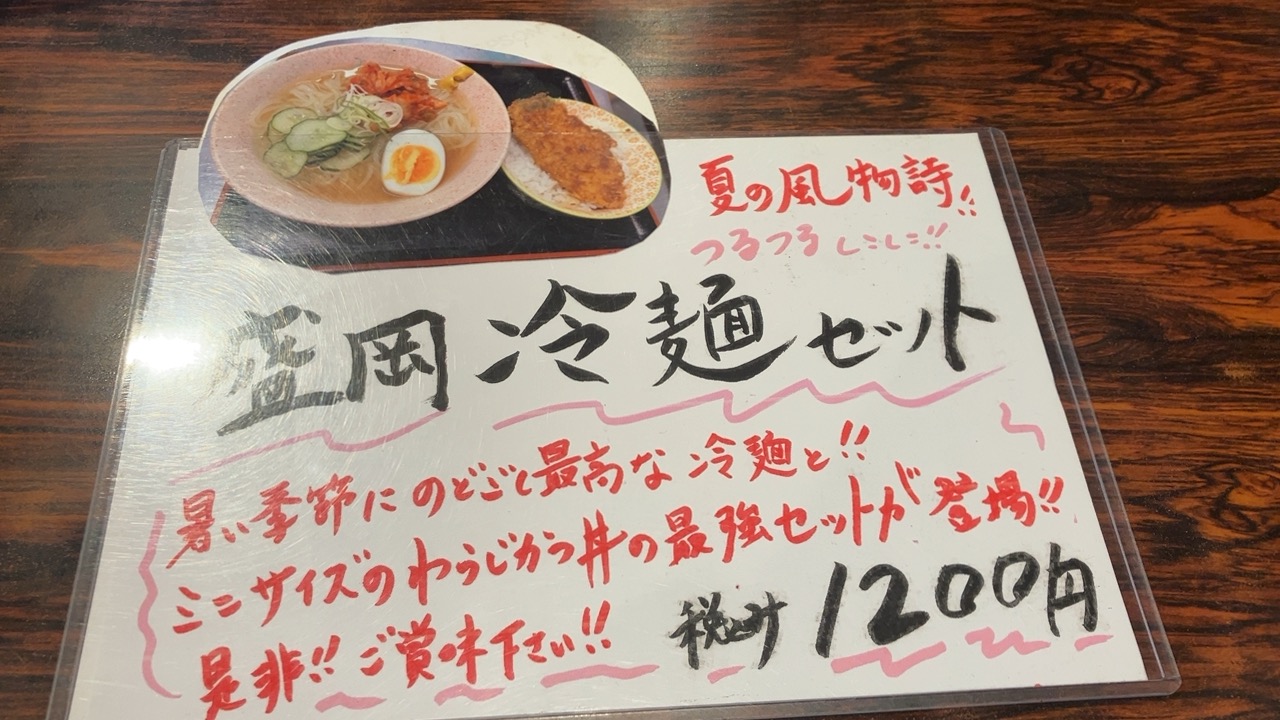 夏の風物詩!!
つるつるしこしこ!!
盛岡冷麺セット
暑い季節にのどごし最高な冷麺と!!
ミニサイズのわらじかつ丼の最強セットが登場!!
是非!!ご賞味下さい!!
税込み1200円